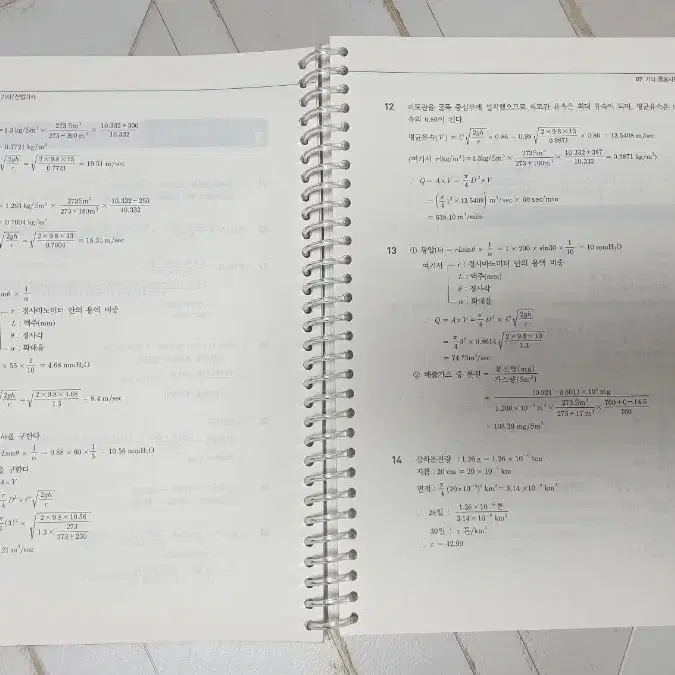 기사/산업기사
= 1.3 kg/Sm³ × 273 Sm³/(273+200 m³) × (10,332+300)/10,332
= 0.7721 kg/m³
√(2gh/r) = √(2×9.8×15/0.7721) = 19.51 m/sec
= 1.293 kg/Sm³ × 273Sm³/(273+180m³) × (10,332-250)/10,332
= 0.7604 kg/m³
√(2gh/r) = √(2×9.8×13/0.7604) = 18.31 m/sec
sinθ × 1/α
r : 경사마노미터 안의 용액 비중
L : 액주(mm)
θ : 경사각
α : 확대율
× 55 × 1/10 = 4.68 mmH₂O
√(2gh/r) = √(2×9.8×4.68/1.3) = 8.4 m/sec
구한다.
Lsinθ × 1/α = 0.88 × 60 × 1/5 = 10.56 mmH₂O
구한다.
A×V
π/4 D² × C √(2gh/r)
(3)² × √(2×9.8×10.56/(1.3 × 273/(273+230)))
21 m³/sec
07 기타
12 피토관을 굴뚝 중심부에 설치했으므로 피토관 유속은 최대 유속이 되며, 평균유속은
속의 0.86이 된다.
평균유속(V) = C √(2gh/r) × 0.86 = 0.98 √(2×9.8×13/0.9871) × 0.86 = 13.5408 m/sec
(여기서 r(kg/m³) = 1.3kg/Sm³ × 273Sm³/(273+100m³) × (10,332+387)/10,332 = 0.9871 kg/m³)
∴ Q = A×V = π/4 D²×V
= (π/4 1²×13.5408) m³/sec × 60 sec/min
= 638.10 m³/min
13 ① 동압(h) = rLsinθ × 1/α = 1 × 200 × sin30 × 1/10 = 10 mmH₂O
여기서 r : 경사마노미터 안의 용액 비중
L : 액주(mm)
θ : 경사각
α : 확대율
∴ Q = A×V = π/4 D² × C √(2gh/r)
= π/4 3² × 0.8614 √(2×9.8×10/1.3)
= 74.73m³/sec
② 배출가스 중 분진 = 분진량(mg)/가스량(Sm³)
= 108.29 mg/Sm³
14 강하분진량 : 1.26 g = 1.26 × 10⁻⁶ ton
지름 : 20 cm = 20 × 10⁻⁵ km
면적 : π/4 (20×10⁻⁵)² km² = 3.14 × 10⁻⁸ km²
∴ 28일 : 1.26×10⁻⁶톤/3.14×10⁻⁸ km²
30일 : x 톤/km²
∴ x = 42.99